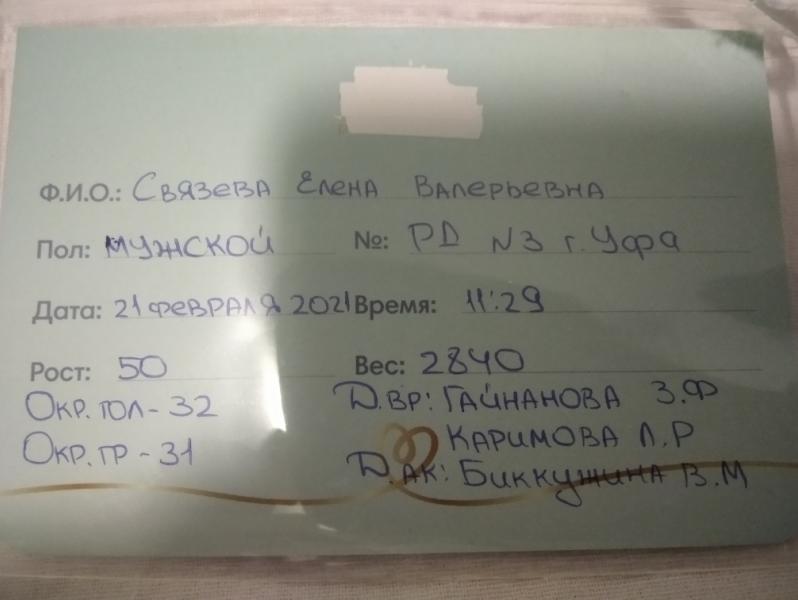 Ф.И.О.: Связева Елена Валерьевна
Пол: мужской №: РД №3 г. Уфа
Дата: 21 февраля 2021 Время: 11:29
Рост: 50 Вес: 2840
Окр. гол - 32 Д.вр: Гайнанова З.Ф
Окр. гр - 31 Каримова Л.Р
Д.ак: Биккужина В.М